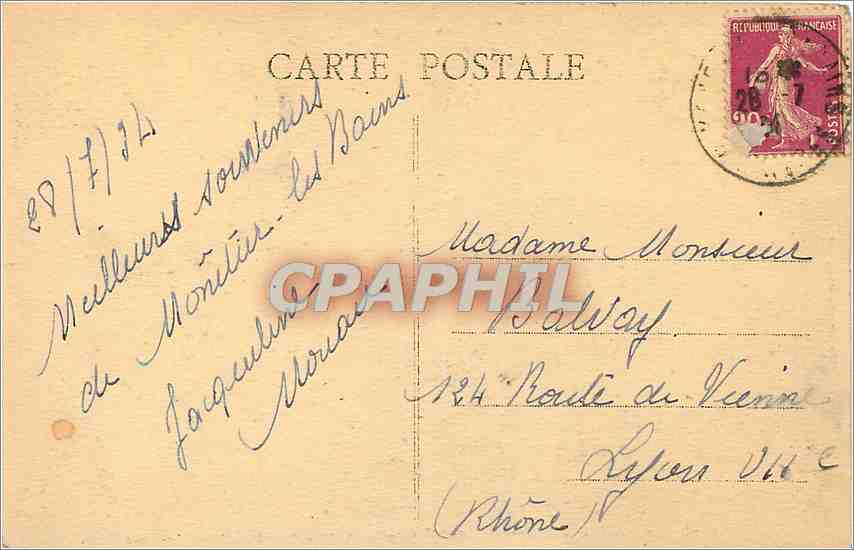 CARTE POSTALE
REPUBLIQUE FRANÇAISE
28 -7
34
POSTES
28/7/34
Meilleurs souvenirs
de Mônetier-les Bains
Jacqueline
CPAPHIL
Madame Monsieur
Balvay
124 Route de Vienne
Lyon VIIe
(Rhône)